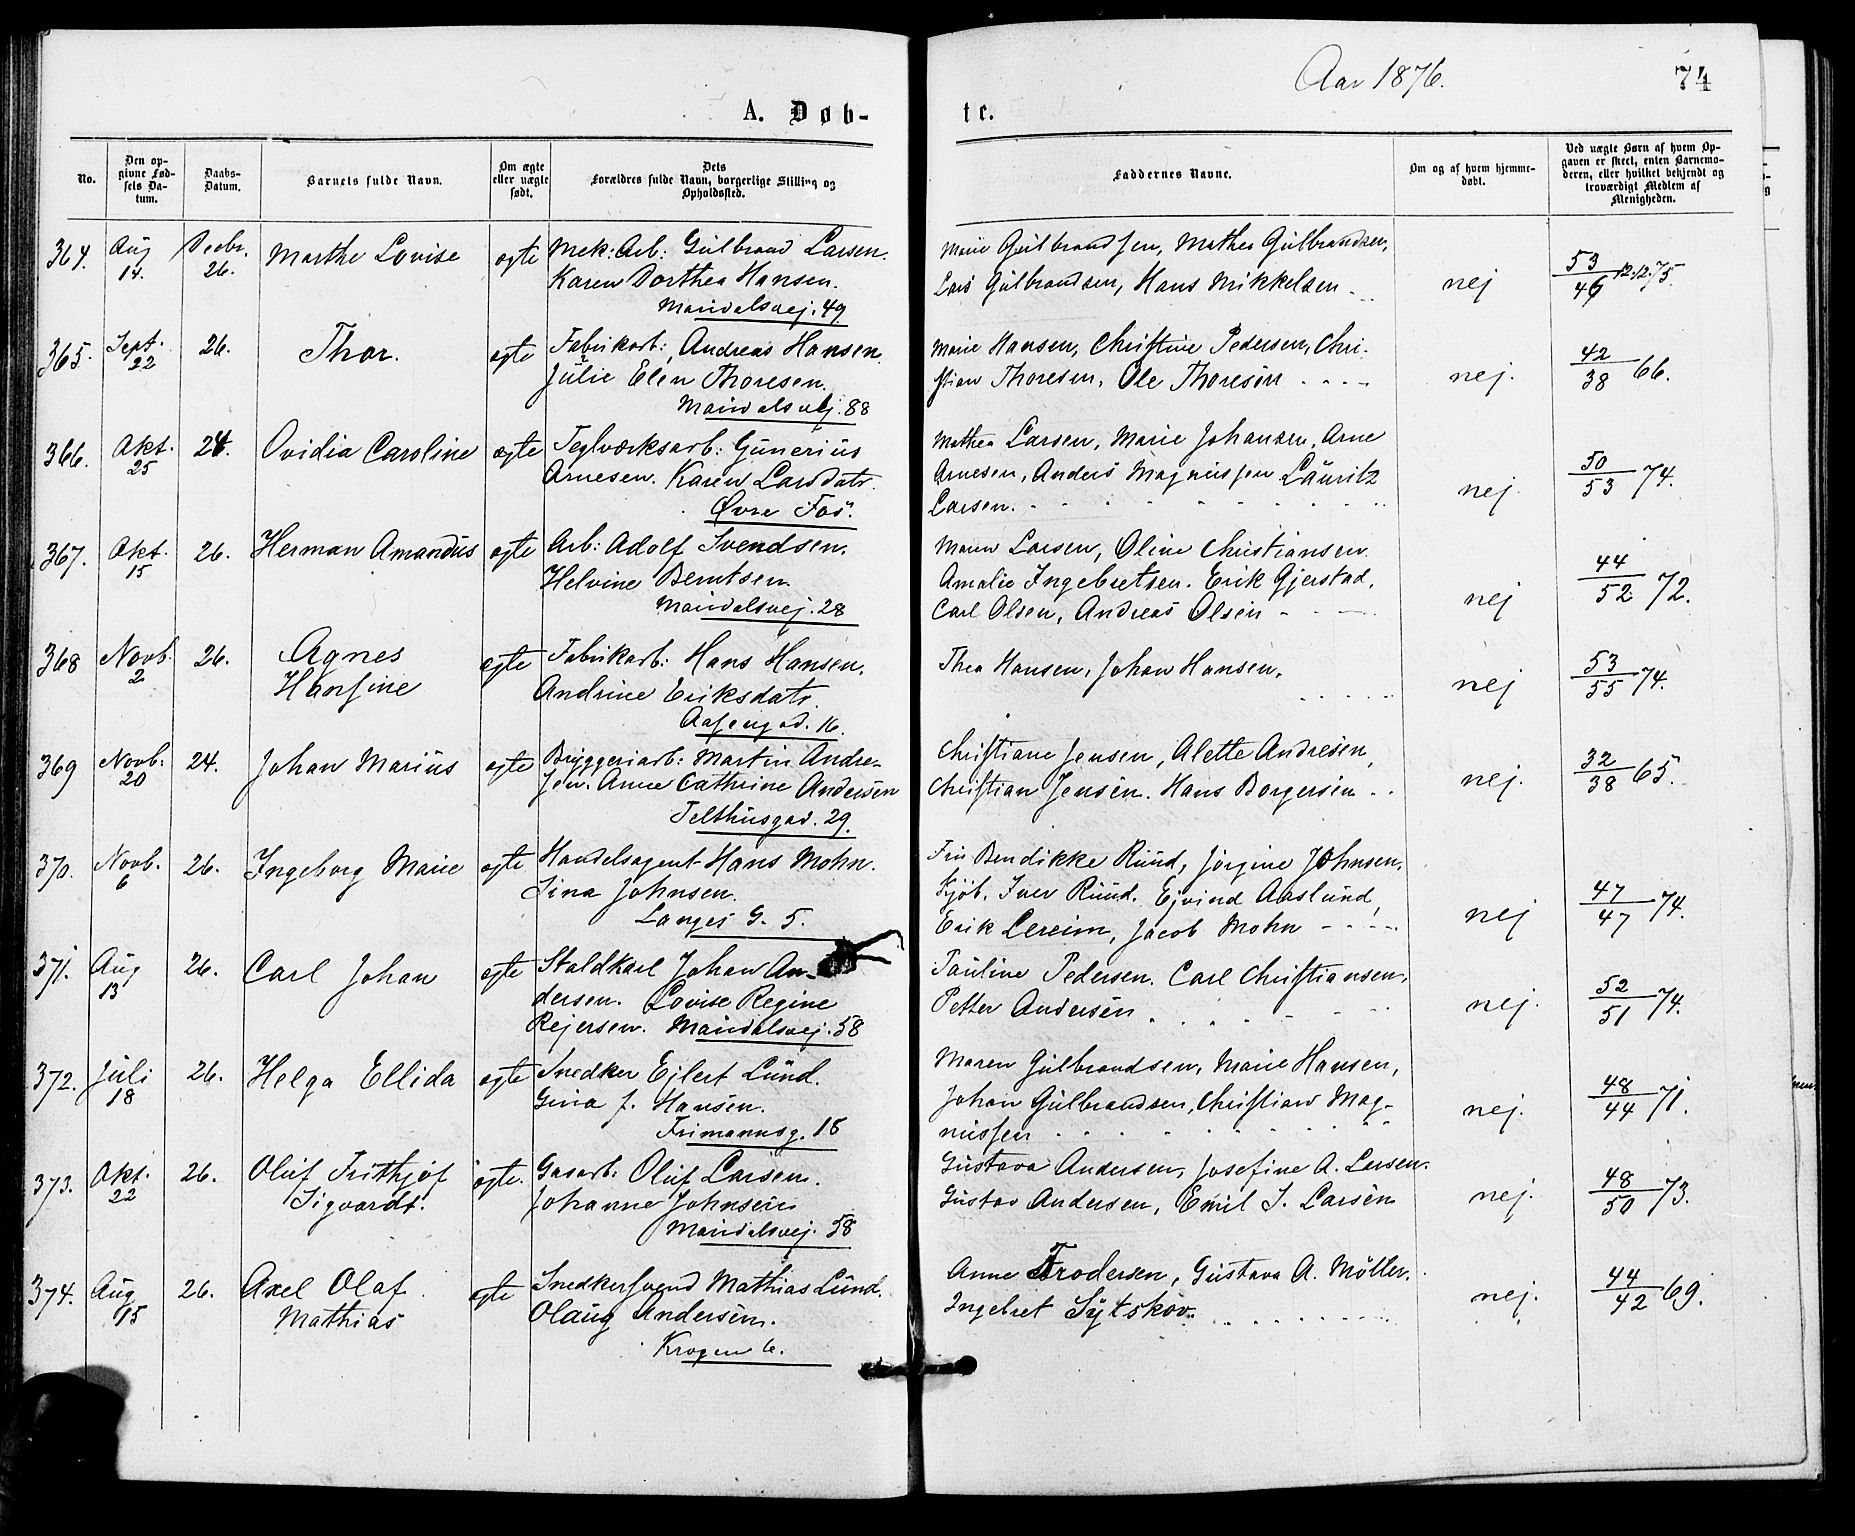 Aar 1876.
74
A. Døb-
te.
No.
Den op-
givne Fød-
sels Da-
tum.
Daabs-
Datum.
Barnets fulde Navn.
Om ægte
eller uægte
født.
Dets
Forældres fulde Navn, borgerlige Stilling og
Opholdssted.
Faddernes Navne.
Om og af hvem hjemme-
døbt.
Ved uægte Børn af hvem Op-
gaven er skeet, enten Barnemo-
deren, eller hvilket bekjendt og
troværdigt Medlem af
Menigheden.
364. Aug 14. Decbr. 26. Marthe Lovise ægte Mek: Arb: Gulbrand Larsen.
Karen Dorthea Hansen.
Maridalsvej. 49
Marie Gulbrandsen, Mathea Gulbrandsen,
Lars Gulbrandsen, Hans Mikkelsen
nej
53/46 12.12.75.
365. Sept. 22 26. Thor. ægte Fabrikarb: Andreas Hansen
Julie Elen Thoresen.
Maridalsvej. 88
Marie Hansen, Christine Pedersen, Chri-
stian Thoresen, Ole Thoresen
nej.
42/38 66.
366. Okt. 25 24. Ovidia Caroline ægte Teglværksarb: Gunerius
Arnesen. Karen Larsdatr.
Øvre Fos.
Mathea Larsen, Marie Johansen, Arne
Arnesen, Anders Magnussen Lauritz
Larsen.
nej.
50/53 74.
367. Okt. 15 26. Herman Amandus ægte Arb: Adolf Svendsen.
Helvine Berntsen
Maridalsvej. 28
Maren Larsen, Oline Christiansen
Amalie Ingebretsen. Erik Gjerstad,
Carl Olsen, Andreas Olsen
nej
44/52 72.
368 Novb. 2 26. Agnes
Hansine
ægte Fabrikarb: Hans Hansen,
Andrine Eriksdatr.
Aasengad. 16.
Thea Hansen, Johan Hansen.
nej
53/55 74.
369 Novb. 20 24. Johan Marius ægte Bryggeriarb: Martin Andre-
sen. Anne Cathrine Andersen
Telthusgad. 29.
Christiane Jensen, Alette Andresen,
Christian Jensen. Hans Borgersen
nej.
32/38 65.
370. Novb. 6 26. Ingeborg Marie ægte Handelsagent Hans Mohn.
Sina Johnsen.
Langes G. 5.
Fru Bendikke Ruud, Jørgine Johnsen,
Kjøb. Iver Ruud. Ejvind Aaslund,
Erik Lereim, Jacob Mohn
nej
47/47 74.
371. Aug 13 26. Carl Johan ægte Staldkarl Johan An-
dersen. Lovise Regine
Rejersen. Maridalsvej. 58
Pauline Pedersen. Carl Christiansen,
Petter Andersen
nej.
52/51 74.
372. Juli 18 26. Helga Ellida ægte Snedker Ejlert Lund.
Gina f. Hansen.
Frimannsg. 18
Maren Gulbrandsen, Marie Hansen,
Johan Gulbrandsen, Christian Mag-
nussen
nej.
48/44 71.
373. Okt. 22 26. Oluf Frithjof
Sigvardt.
ægte. Gasarb: Oluf Larsen.
Johanne Johnsen
Maridalsvej. 58
Gustava Andersen, Josefine A. Larsen.
Gustav Andersen, Emil S. Larsen
nej.
48/50 73.
374. Aug 15 26. Axel Olaf
Mathias
ægte Snedkersvend Mathias Lund.
Olaug Andersen.
Krogen 6.
Anne Frodersen, Gustava A. Møller.
Ingebret
nej.
44/42 69.